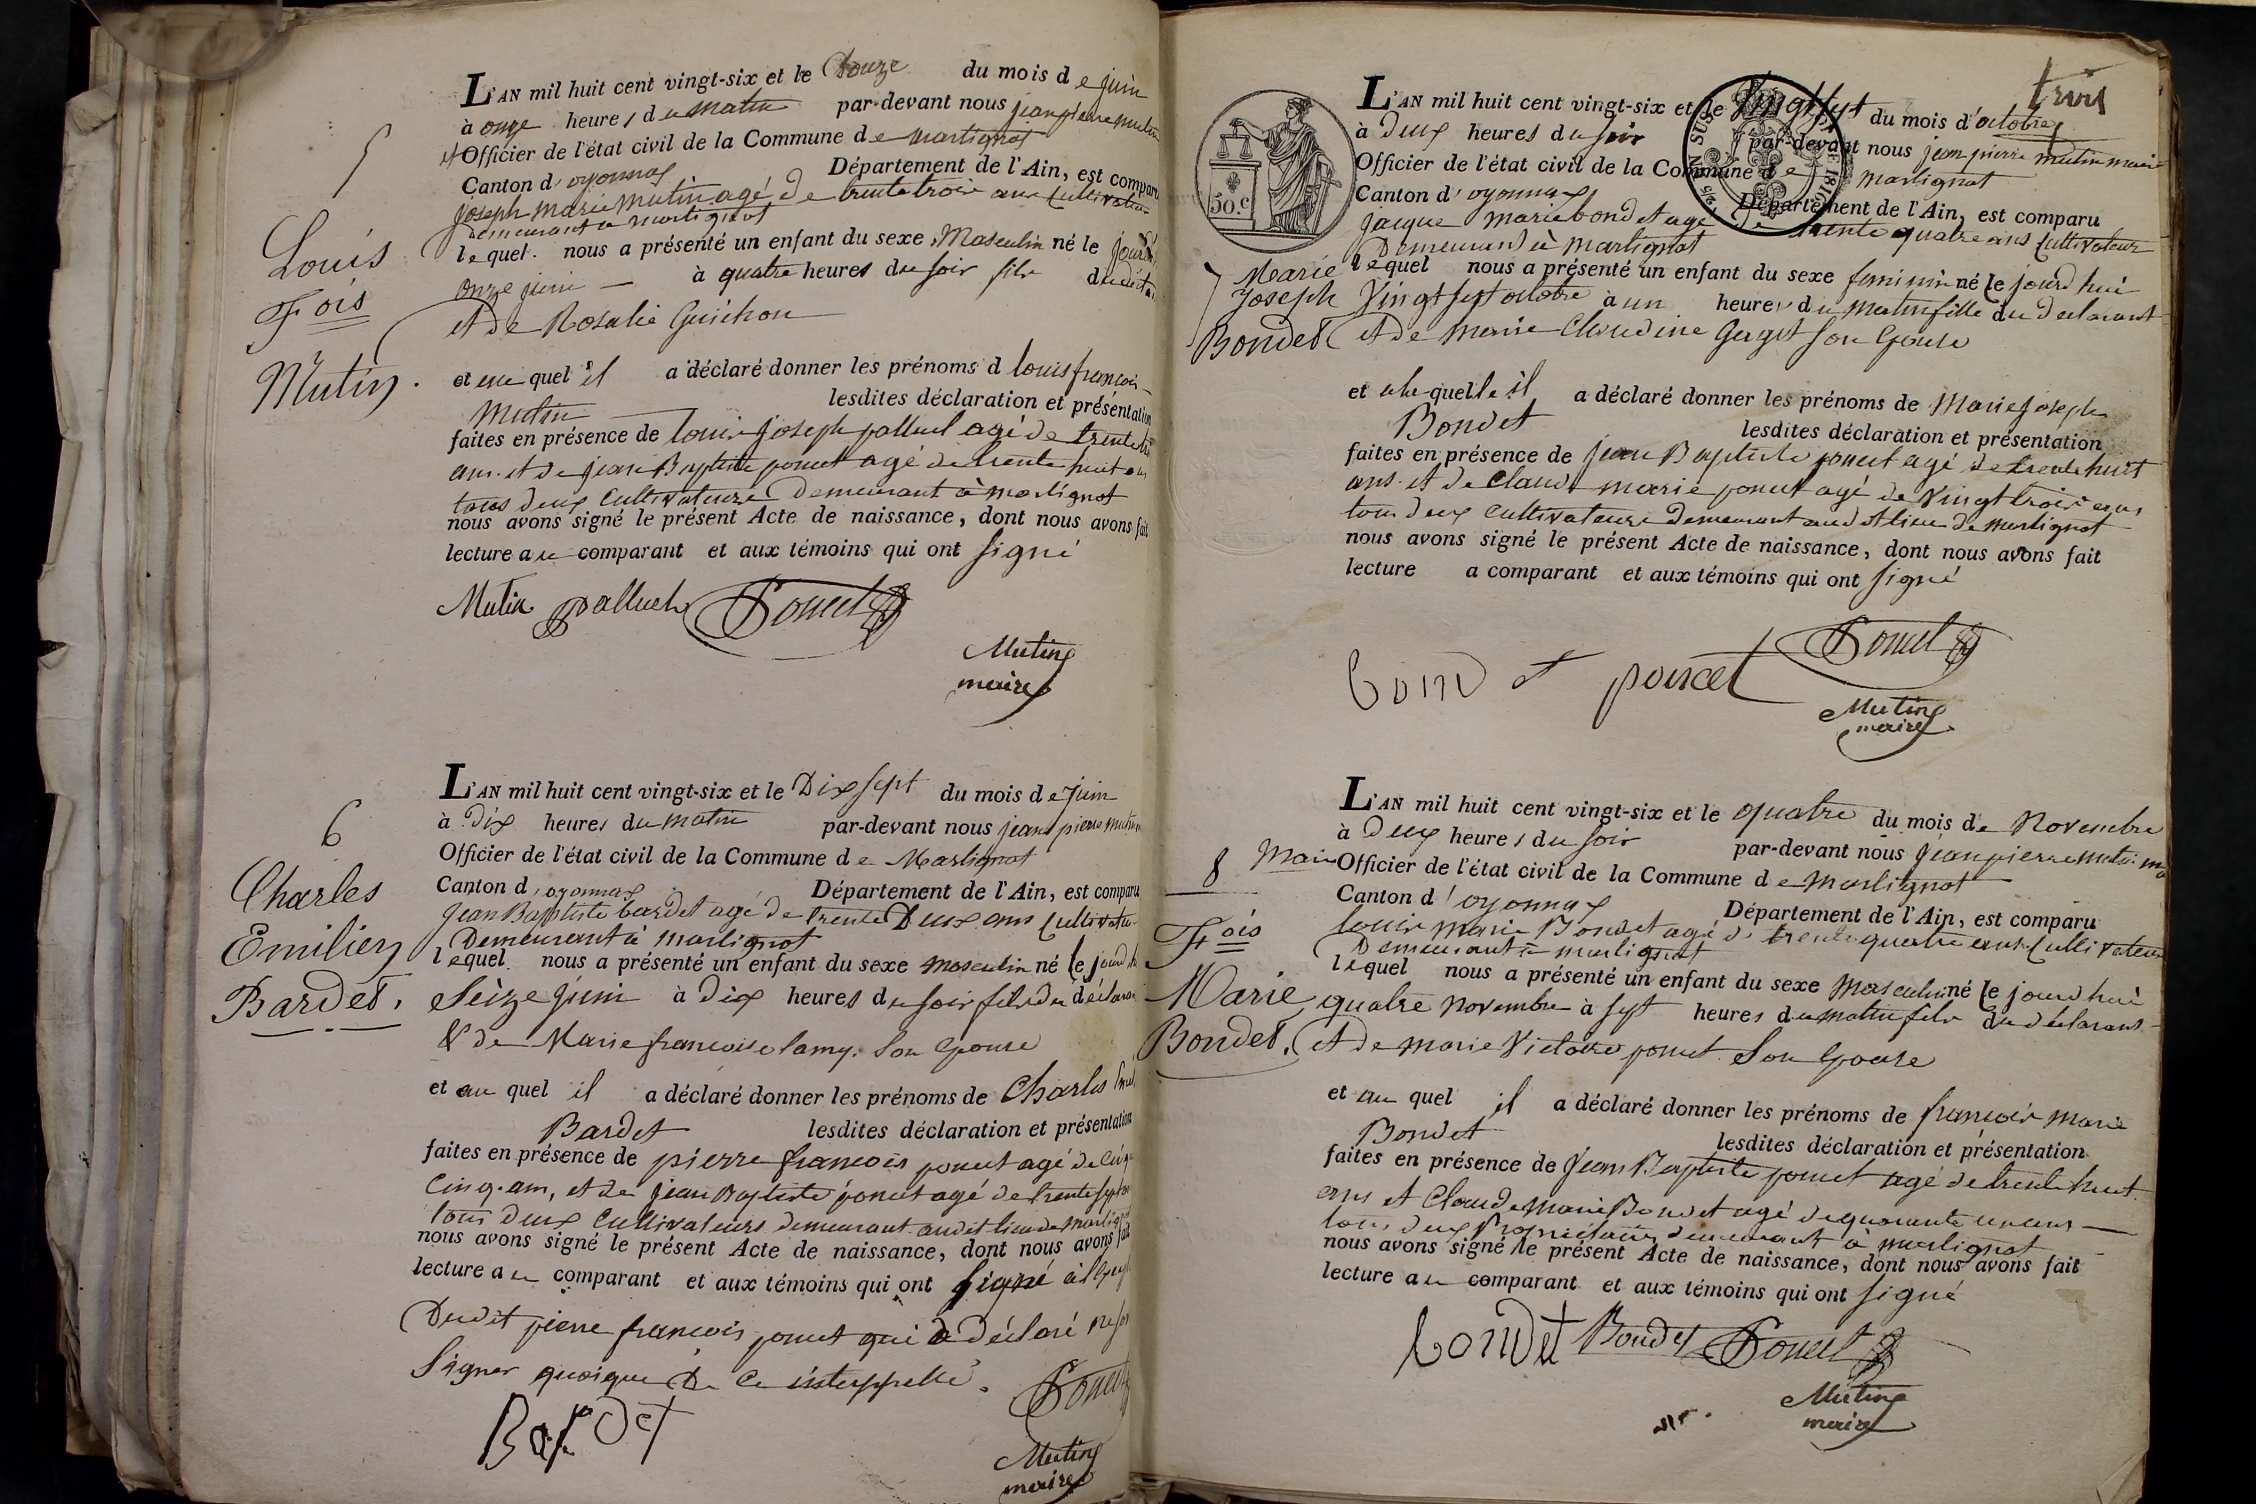 5
Louis
Fois
Mutin.
L'AN mil huit cent vingt-six et le Douze du mois de juin
à onze heures du matin par-devant nous jean pierre mutin
Officier de l'état civil de la Commune de martignat
Canton d'oyonnax Département de l'Ain, est comparu
joseph marie mutin agé de trente trois ans Cultivateur
demeurant a martignat
lequel nous a présenté un enfant du sexe Masculin né le jourd
onze juin à quatre heures du soir fils
et de Rosalie Guichon
et au quel il a déclaré donner les prénoms d louis françois
Mutin lesdites déclaration et présentation
faites en présence de louis joseph palluel agé de trente
ans et de jean Baptiste poncet agé de trente huit ans
tous deux Cultivateurs Demeurant à martignat
nous avons signé le présent Acte de naissance, dont nous avons fait
lecture au comparant et aux témoins qui ont signé
Mutin palluel Poncet
Mutin
maire
6
Charles
Emilien
Bardet.
L'AN mil huit cent vingt-six et le Dix sept du mois de juin
à dix heures du matin par-devant nous jean pierre mutin
Officier de l'état civil de la Commune de Martignat
Canton d'oyonnax Département de l'Ain, est comparu
jean Baptiste bardet agé de trente Deux ans Cultivateur
Demeurant à martignat
lequel nous a présenté un enfant du sexe masculin né le jourd
Seize juin à dix heures du soir fils du déclarant
& de Marie francoise lamy son Epouse
et au quel il a déclaré donner les prénoms de Charles
Bardet lesdites déclaration et présentation
faites en présence de pierre francois poncet agé de
Cinq ans, et de jean Baptiste poncet agé de trente sept
tous deux Cultivateurs demeurant audit lieu de
nous avons signé le présent Acte de naissance, dont nous avons fait
lecture au comparant et aux témoins qui ont signé
Dudit pierre francois poncet qui a déclaré
Signer quoique de ce interppellé.
Poncet
Bardet
Mutin
maire
trois
50.c
L'AN mil huit cent vingt-six et le Vingt sept du mois d'octobre
à Deux heures du soir par-devant nous jean pierre mutin maire
Officier de l'état civil de la Commune de Martignat
Canton d'oyonnax Département de l'Ain, est comparu
jacque marie bondet agé de trente quatre ans Cultivateur
Demeurant à martignat
7
Marie
Joseph
Bondet
lequel nous a présenté un enfant du sexe feminin né le jourd hui
Vingt sept octobre à un heures du Matin fille du declarant
et de marie Claudine son Epouse
et a la quelle il a déclaré donner les prénoms de Marie joseph
Bondet lesdites déclaration et présentation
faites en présence de jean Baptiste poncet agé de trente huit
ans et de Claude marie poncet agé de Vingt trois ans
tous deux Cultivateurs demeurant audit lieu de martignat
nous avons signé le présent Acte de naissance, dont nous avons fait
lecture a comparant et aux témoins qui ont signé
Poncet
bondet poncet
Mutin
maire
8
Fois
Marie
Bondet.
L'AN mil huit cent vingt-six et le quatre du mois de Novembre
à Deux heures du soir par-devant nous jean pierre mutin
Maire Officier de l'état civil de la Commune de Martignat
Canton d'oyonnax Département de l'Ain, est comparu
louis marie Bondet agé de trente quatre ans Cultivateur
Demeurant à martignat
lequel nous a présenté un enfant du sexe Masculin né le jourd hui
quatre Novembre à sept heures du matin fils du déclarant
et de marie Victoire poncet Son Epouse
et au quel il a déclaré donner les prénoms de francois marie
Bondet lesdites déclaration et présentation
faites en présence de jean Baptiste poncet agé de trente huit
ans et Claude Marie Bondet agé de quarante un ans
tous deux Propriétaires demeurant à martignat
nous avons signé le présent Acte de naissance, dont nous avons fait
lecture au comparant et aux témoins qui ont signé
bondet Bondet Poncet
Mutin
maire